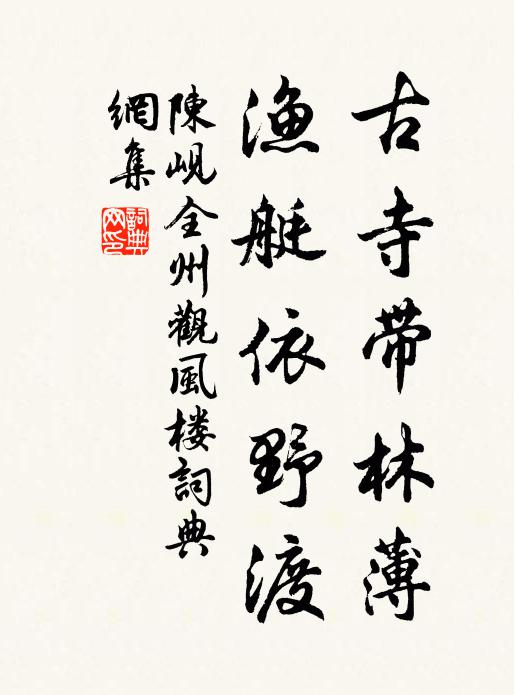 古寺带林薄
渔艇依野渡
陳峴全州觀風楼詞典
網集
詞典网印